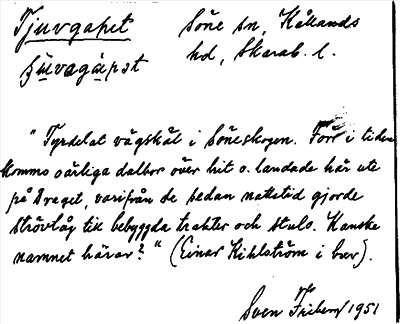 Tjuvgapet Söne sn, Kållands
hd, Skarab. l.
ʃüvagäpət
"Fyrdelat vägskäl i Söneskogen. Förr i tiden
kommo oärliga dalbor över hit o. landade här ute
på Dreget, varifrån de sedan nattetid gjorde
strövtåg till bebyggda trakter och stulo. Kanske
namnet härav?" (Einar Kihlström i brev).
Sven Friberg 1951